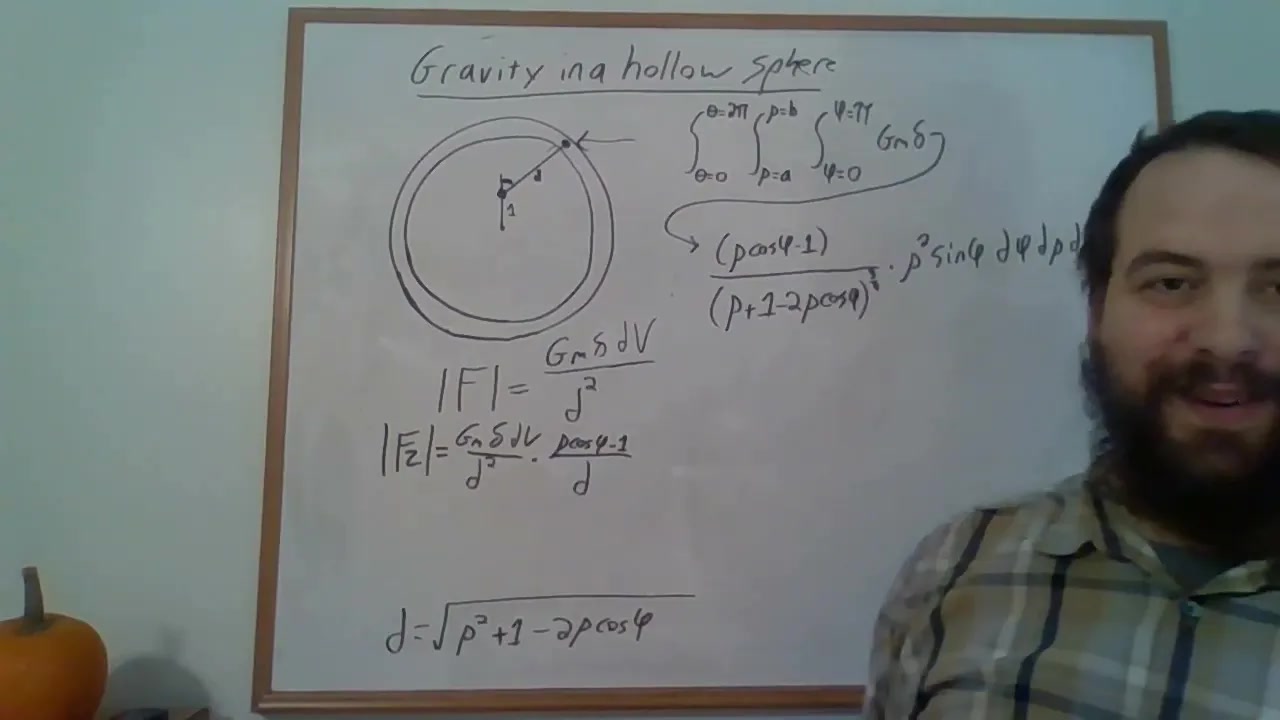 Gravity in a hollow sphere
∫θ=0^θ=2π ∫ρ=a^ρ=b ∫φ=0^φ=π Gmδ
d
1
(ρcosφ-1) / (ρ+1-2ρcosφ)^3/2 · ρ²sinφ dφ dρ d
|F| = GmδdV / d²
|Fz| = GmδdV / d² · ρcosφ-1 / d
d=√ρ²+1-2ρcosφ